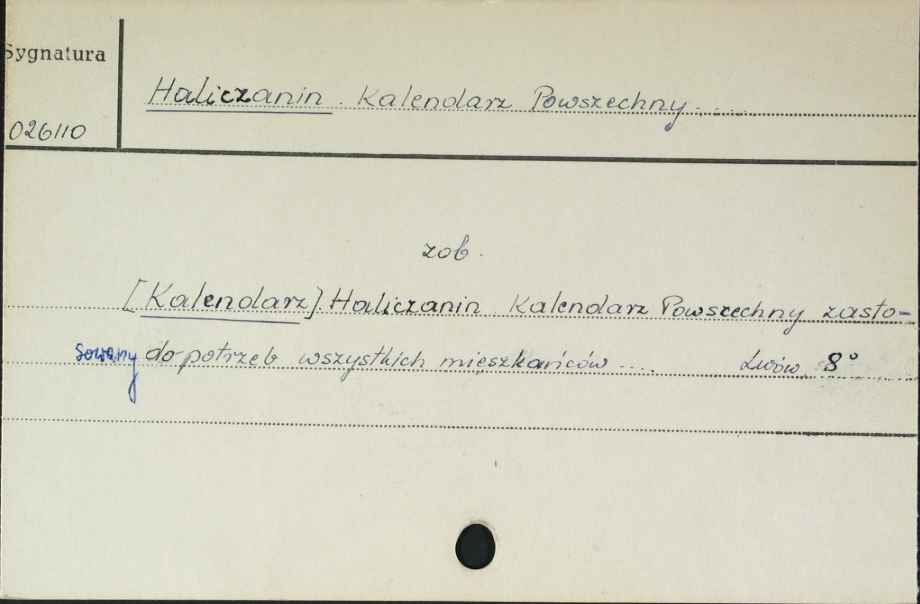 Sygnatura
Haliczanin. Kalendarz Powszechny.....
026110
zob.
[Kalendarz] Haliczanin Kalendarz Powszechny zasto-
sowany do potrzeb wszystkich mieszkańców.... Lwów 8°